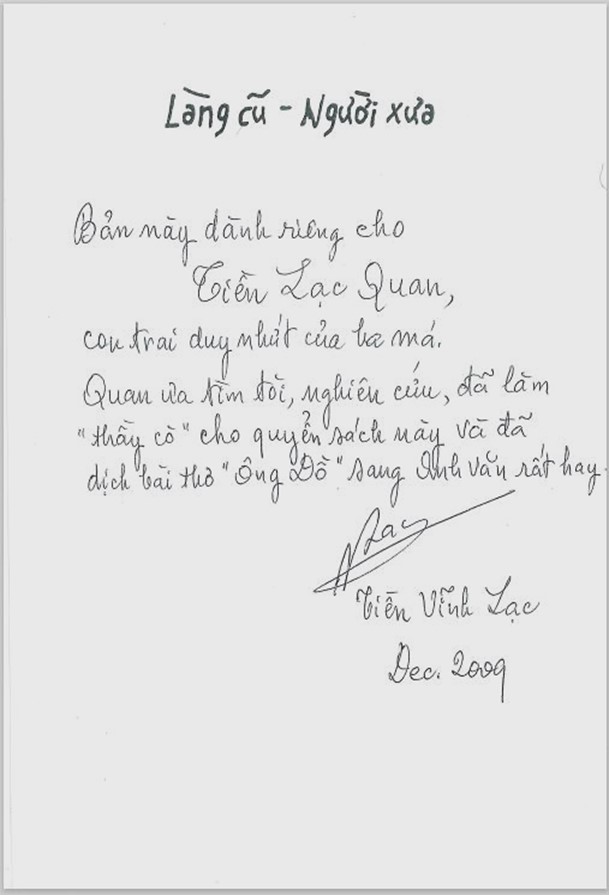 Làng cũ - Người xưa
Bản này dành riêng cho
Tiền Lạc Quan,
con trai duy nhất của ba má.
Quan ưa tìm tòi, nghiên cứu, đã làm
"thầy cò" cho quyển sách này và đã
dịch bài thơ "Ông Đồ" sang Anh văn rất hay.
Lạc
Tiền Vĩnh Lạc
Dec. 2009